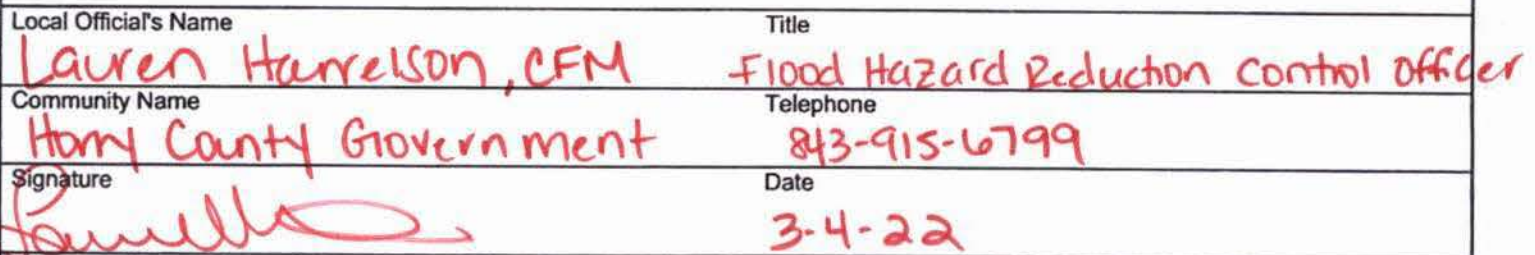 Local Official's Name Title
Lauren Harrelson, CFM Flood Hazard Reduction Control Officer
Community Name Telephone
Horry County Government 843-915-6799
Signature Date
3-4-22